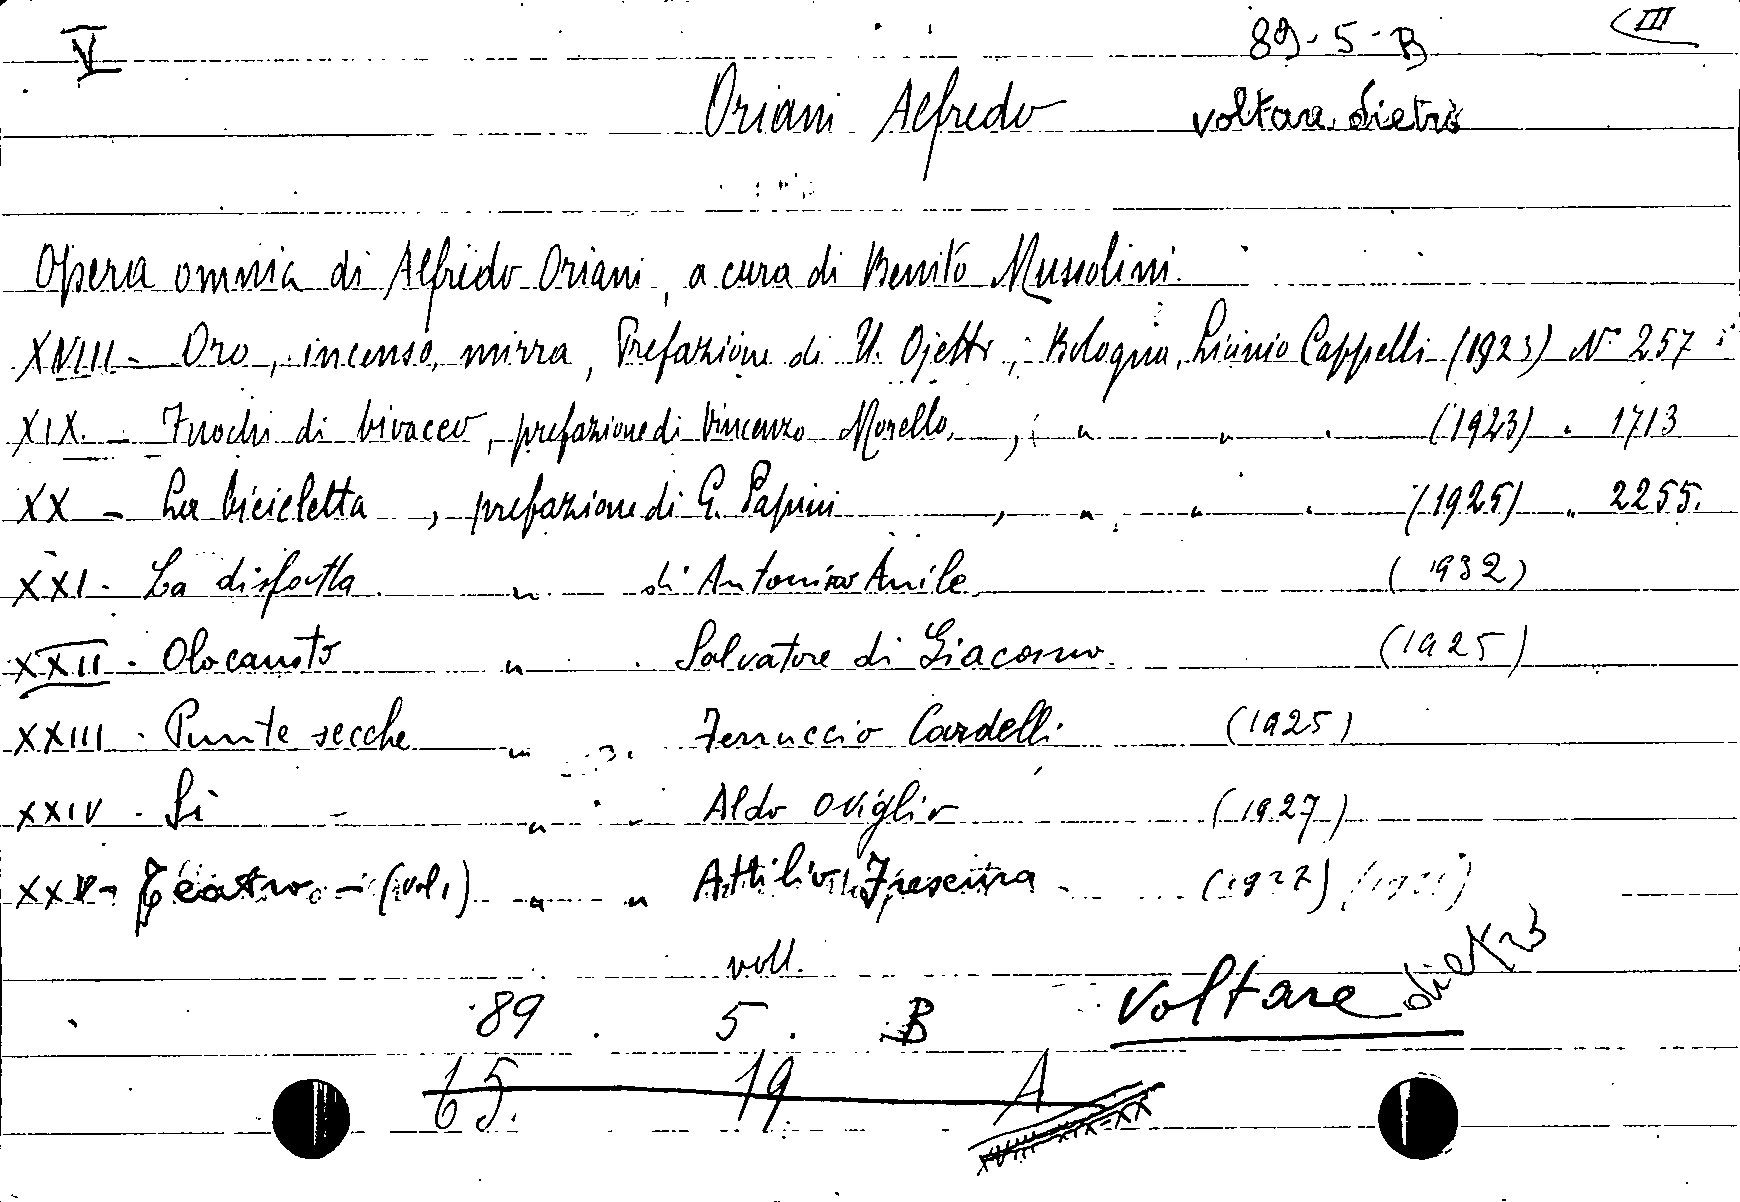 V 89-5-B III
Oriani Alfredo voltare dietro
Opera omnia di Alfredo Oriani, a cura di Benito Mussolini.
XVIII - Oro, incenso, mirra, Prefazione di U. Ojetti, Bologna, Licinio Cappelli (1923) N° 257
XIX. - Fuochi di bivacco, prefazione di Vincenzo Morello, , " " . (1923) " 1713
XX - La bicicletta, prefazione di G. Papini , " " . (1925) " 2255.
XXI - La disfatta " di Antonino Anile (1932)
XXII - Olocausto " . Salvatore di Giacomo (1925)
XXIII - Punte secche " . Ferruccio Cardelli (1925)
XXIV - Sì - " . Aldo Oviglio (1927)
XXV - Teatro - (vol 1) " " Attilio Frescura (1927)
voll.
89 . 5 . B voltare dietro
65. 19. A
XVIII-XIX-XX